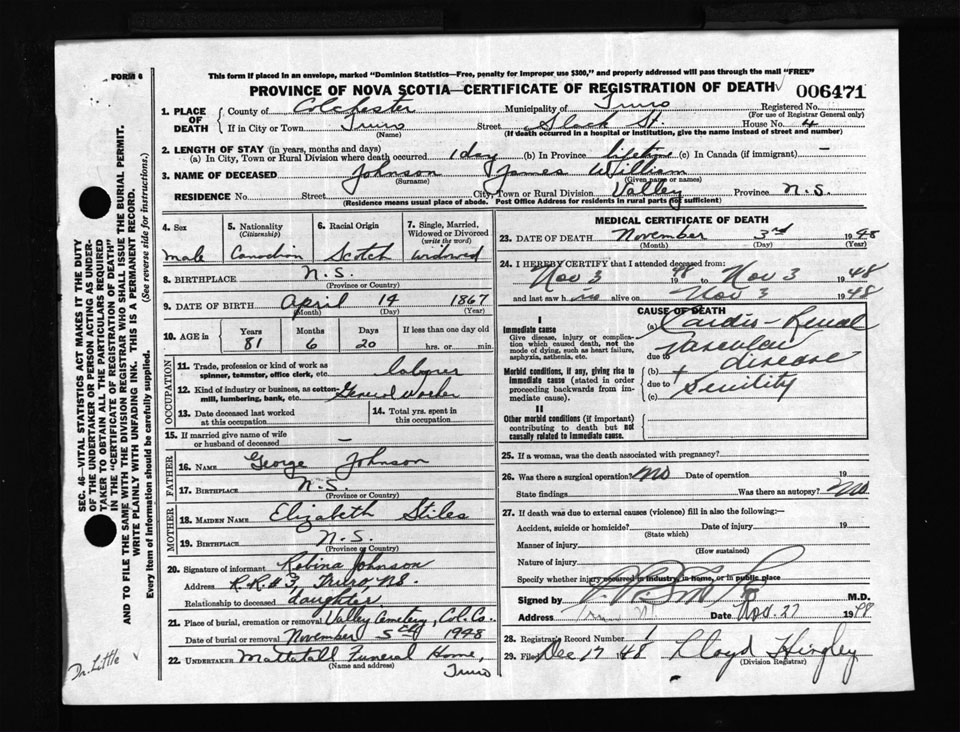 FORM 6
This form if placed in an envelope, marked "Dominion Statistics—Free, penalty for improper use $300," and properly addressed will pass through the mail "FREE"
PROVINCE OF NOVA SCOTIA—CERTIFICATE OF REGISTRATION OF DEATH 006471
1. PLACE OF DEATH County of Colchester Municipality of Truro Registered No.
(For use of Registrar General only)
If in City or Town Truro Street Slack St. House No. 4
(Name) (If death occurred in a hospital or institution, give the name instead of street and number)
2. LENGTH OF STAY (in years, months and days)
(a) In City, Town or Rural Division where death occurred 1 day (b) In Province lifetime (c) In Canada (if immigrant) —
3. NAME OF DECEASED Johnson James William
(Surname) (Given name or names)
RESIDENCE No. Street City, Town or Rural Division Valley Province N.S.
(Residence means usual place of abode. Post Office Address for residents in rural parts not sufficient)
4. Sex 5. Nationality (Citizenship) 6. Racial Origin 7. Single, Married, Widowed or Divorced (write the word)
male Canadian Scotch widowed
8. BIRTHPLACE N.S.
(Province or Country)
9. DATE OF BIRTH April 14 1867
(Month) (Day) (Year)
10. AGE in Years Months Days If less than one day old
81 6 20 hrs. or min.
OCCUPATION
11. Trade, profession or kind of work as spinner, teamster, office clerk, etc. laborer
12. Kind of industry or business, as cotton-mill, lumbering, bank, etc. General Worker
13. Date deceased last worked at this occupation 14. Total yrs. spent in this occupation
15. If married give name of wife or husband of deceased —
FATHER
16. NAME George Johnson
17. BIRTHPLACE N.S.
(Province or Country)
MOTHER
18. MAIDEN NAME Elizabeth Stiles
19. BIRTHPLACE N.S.
(Province or Country)
20. Signature of informant Robina Johnson
Address R.R.#3, Truro, N.S.
Relationship to deceased daughter
21. Place of burial, cremation or removal Valley Cemetery, Col. Co.
Date of burial or removal November 5th 1948
22. UNDERTAKER Mattatall Funeral Home,
(Name and address) Truro
MEDICAL CERTIFICATE OF DEATH
23. DATE OF DEATH November 3rd 1948
(Month) (Day) (Year)
24. I HEREBY CERTIFY that I attended deceased from:
Nov 3 1948 to Nov 3 1948
and last saw h alive on Nov 3 1948
CAUSE OF DEATH
I
Immediate cause (a) Cardio-Renal
Give disease, injury or complication which caused death, not the mode of dying, such as heart failure, asphyxia, asthenia, etc.
due to vascular disease
Morbid conditions, if any, giving rise to immediate cause (stated in order proceeding backwards from immediate cause). (b) +
due to Senility
(c)
II
Other morbid conditions (if important) contributing to death but not causally related to immediate cause.
25. If a woman, was the death associated with pregnancy?
26. Was there a surgical operation? No Date of operation 19
State findings Was there an autopsy? No
27. If death was due to external causes (violence) fill in also the following:—
Accident, suicide or homicide? Date of injury 19
(State which)
Manner of injury
(How sustained)
Nature of injury
Specify whether injury occurred in industry, in home, or in public place
Signed by M.D.
Address Date Nov. 27 1948
28. Registrar's Record Number 1
29. Filed Dec 17 48 Lloyd Hingley
(Division Registrar)
SEC. 46—VITAL STATISTICS ACT MAKES IT THE DUTY
OF THE UNDERTAKER OR PERSON ACTING AS UNDER-
TAKER TO OBTAIN ALL THE PARTICULARS REQUIRED
IN THE "CERTIFICATE OF REGISTRATION OF DEATH"
AND TO FILE THE SAME WITH THE DIVISION REGISTRAR WHO SHALL ISSUE THE BURIAL PERMIT.
WRITE PLAINLY WITH UNFADING INK. THIS IS A PERMANENT RECORD.
Every item of information should be carefully supplied. (See reverse side for instructions.)
Dr. Little